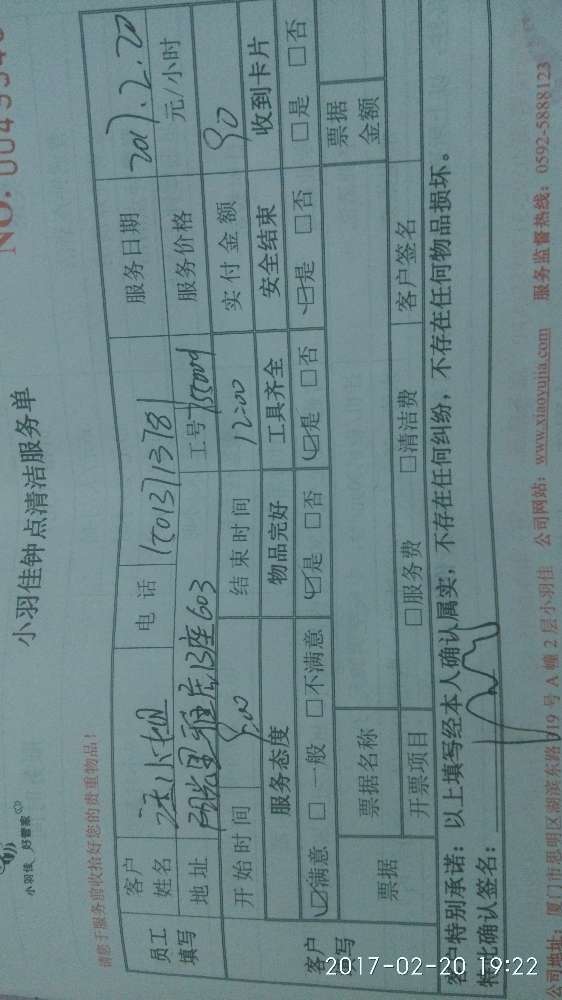 小羽佳 好管家
小羽佳钟点清洁服务单
请您于服务前收拾好您的贵重物品!
员工填写 客户姓名 小姐 电话 15013713781 服务日期 2017.2.20
地址 阳光里雅苑B座603 工号 服务价格 元/小时
客户填写 开始时间 9:00 结束时间 12:00 实付金额 90
服务态度 物品完好 工具齐全 安全结束 收到卡片
☑满意 □一般 □不满意 ☑是 □否 ☑是 □否 ☑是 □否 □是 □否
票据 票据名称 票据金额
开票项目 □服务费 □清洁费 客户签名
客户特别承诺：以上填写经本人确认属实，不存在任何纠纷，不存在任何物品损坏。
特此确认签名：
公司地址：厦门市思明区湖滨东路319号A幢2层小羽佳 公司网站：www.xiaoyujia.com 服务监督热线：0592-5888123
2017-02-20 19:22